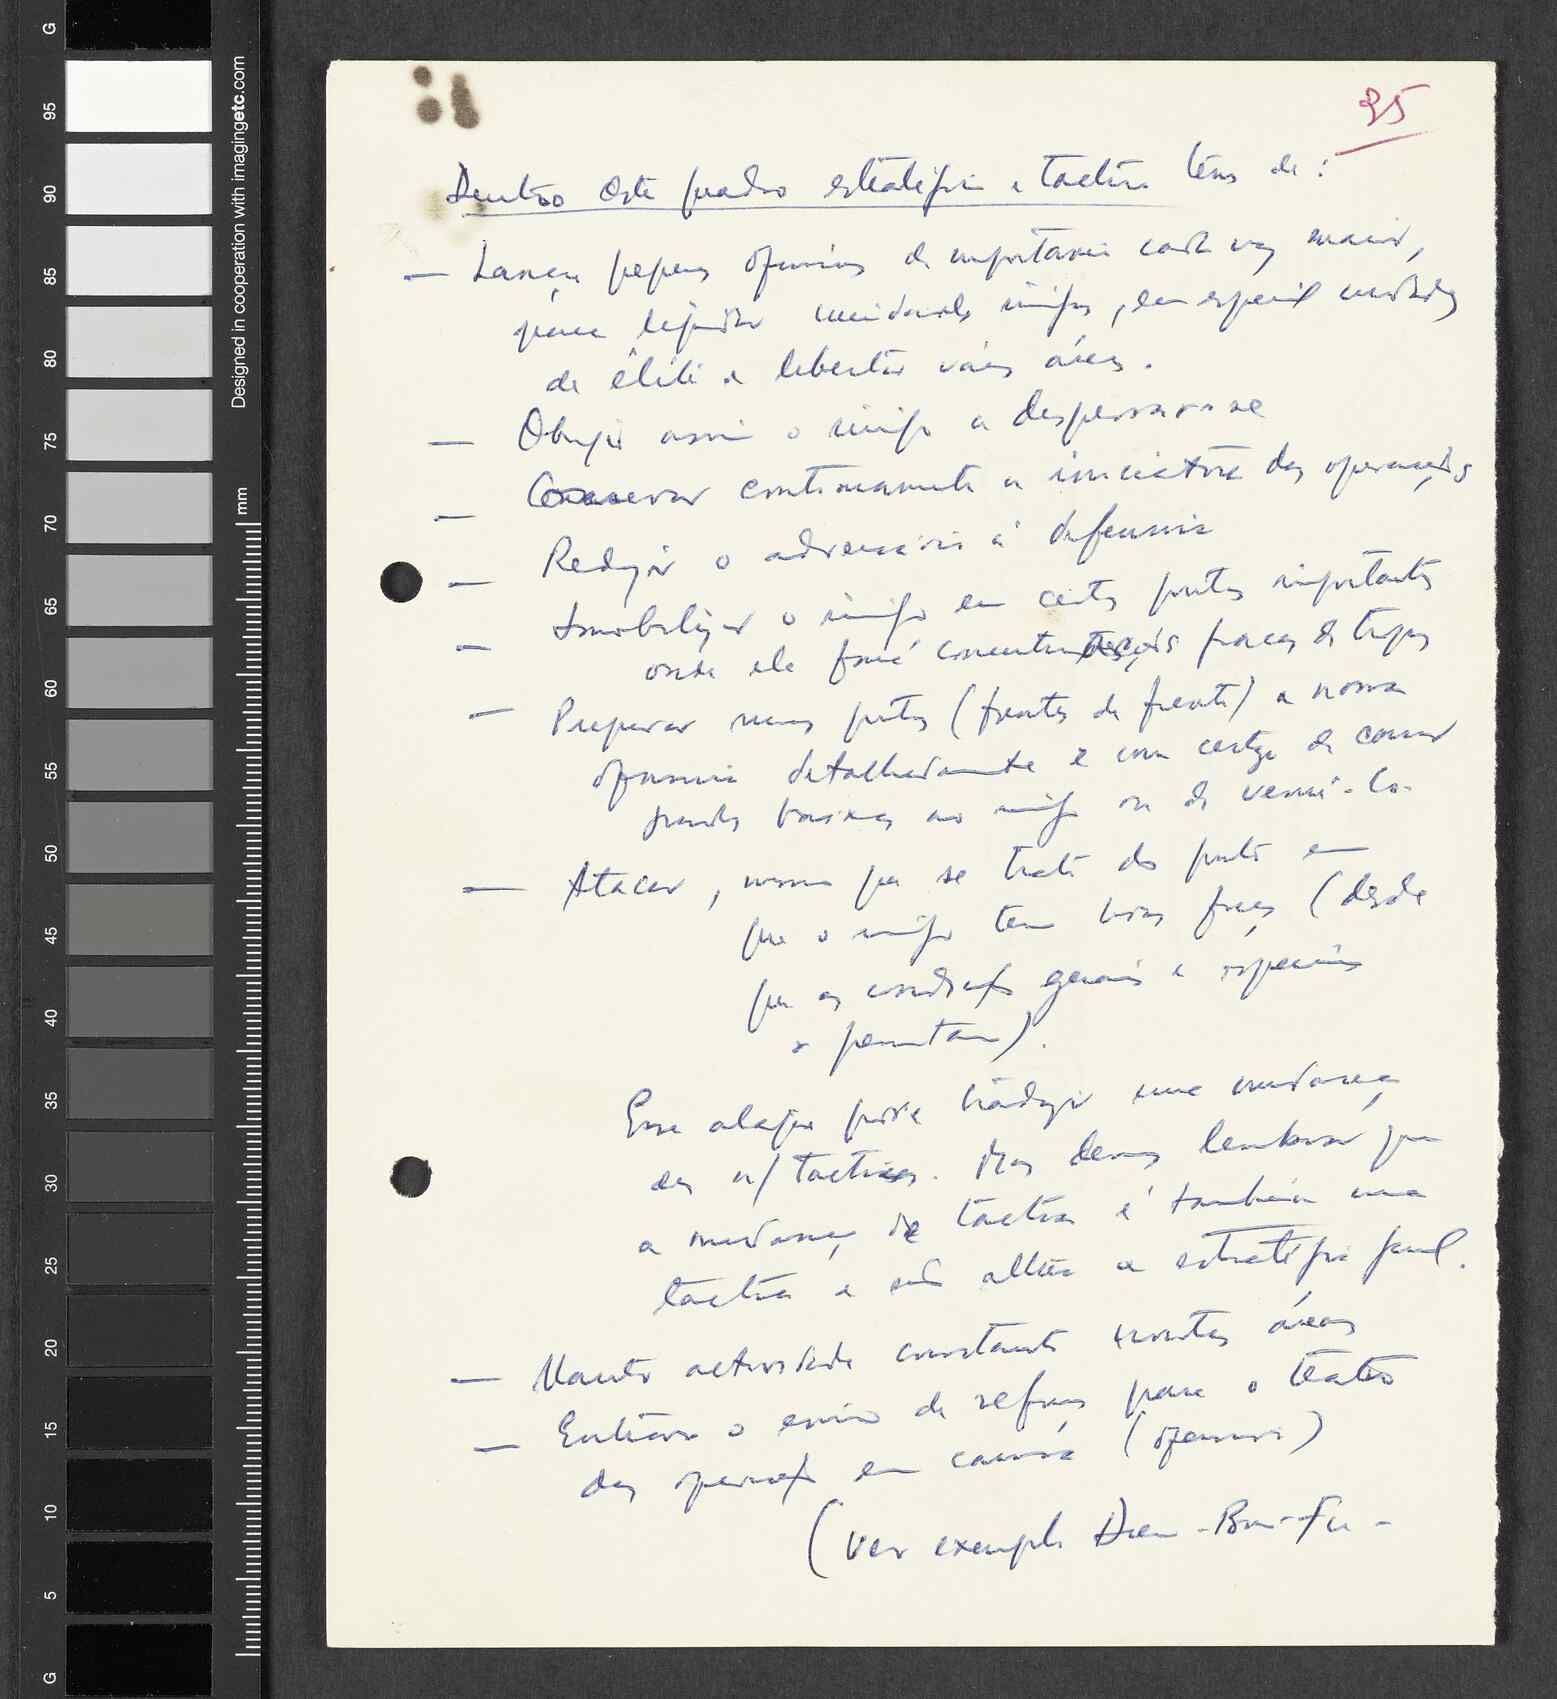 G
95
90
85
80
75
70
65
60
55
50
45
40
35
30
25
20
15
10
5
G
Designed in cooperation with imagingetc.com
mm
25
Dentro este quadro estratégico e táctico temos de:
— Lançar pequenas ofensivas de importancia cada vez maior,
para liquidar unidades inimigas, em especial unidades
de élite e libertar várias áreas.
— Obrigar assim o inimigo a dispersar-se
— Conservar continuamente a iniciativa das operações
— Reduzir o adversário à defensiva
— Imobilizar o inimigo em certos pontos importantes
onde ele fará concentrações fracas de tropas
— Preparar nesses pontos (frentes da frente) a nossa
ofensiva detalhadamente e com certeza de causar
grandes baixas ao inimigo ou de vencê-lo.
— Atacar, mesmo que se trate do ponto em
que o inimigo tem boas forças (desde
que as condições gerais e especiais
o permitam).
Esse ataque pode traduzir uma mudança
da n/ tactica. Mas devemos lembrar que
a mudança de tactica é também uma
tactica e não altera a estratégia geral.
— Manter actividade constante noutras áreas
— Entravar o envio de reforços para o teatro
das operações em causa (ofensiva)
(ver exemplo Dien-Bien-Fu -